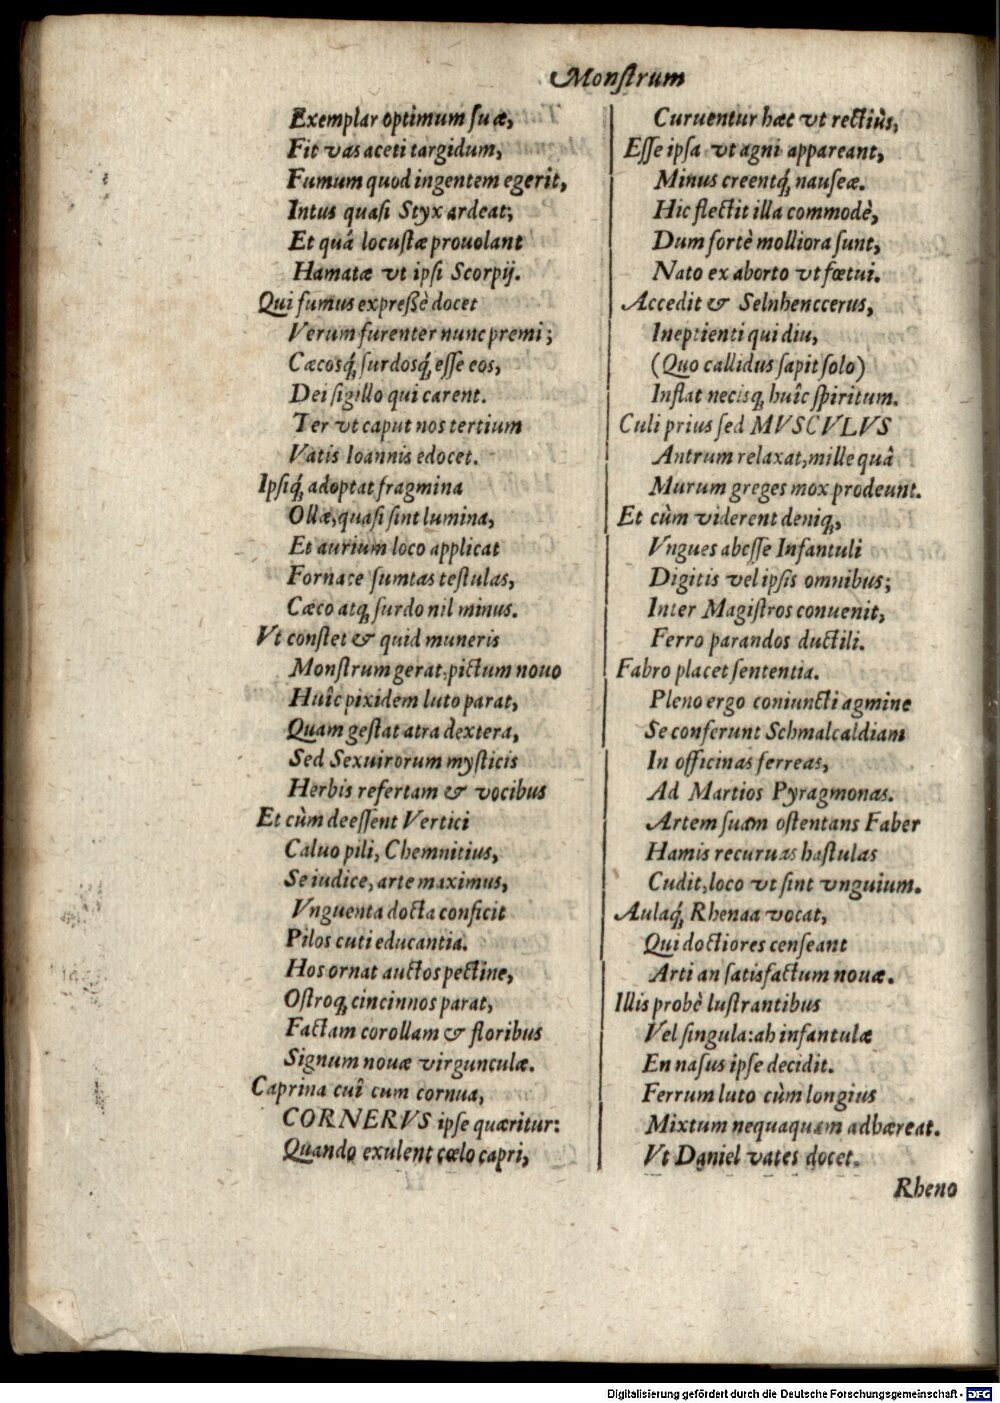 Monstrum
Exemplar optimum suæ,
Fit vas aceti targidum,
Fumum quod ingentem egerit,
Intus quasi Styx ardeat;
Et quâ locustæ prouolant
Hamatæ vt ipsi Scorpij.
Qui fumus expreßè docet
Verum furenter nunc premi;
Cæcosq́, surdosq́, esse eos,
Dei sigillo qui carent.
Ter vt caput nos tertium
Vatis Ioannis edocet.
Ipsiq́, adoptat fragmina
Ollæ, quasi sint lumina,
Et aurium loco applicat
Fornace sumtas testulas,
Cæco atq, surdo nil minus.
Vt constet & quid muneris
Monstrum gerat, pictum nouo
Huîc pixidem luto parat,
Quam gestat atra dextera,
Sed Sexuirorum mysticis
Herbis refertam & vocibus
Et cùm deessent Vertici
Caluo pili, Chemnitius,
Se iudice, arte maximus,
Vnguenta docta conficit
Pilos cuti educantia.
Hos ornat auctos pectine,
Ostroq, cincinnos parat,
Factam corollam & floribus
Signum nouæ virgunculæ.
Caprina cuî cum cornua,
CORNERVS ipse quæritur:
Quando exulent cœlo capri,
Curuentur hæc vt rectiùs,
Esse ipsa vt agni appareant,
Minus creentq́, nauseæ.
Hic flectit illa commodè,
Dum fortè molliora sunt,
Nato ex aborto vt fœtui.
Accedit & Selnhenccerus,
Ineptienti qui diu,
(Quo callidus sapit solo)
Inflat necisq, huîc spiritum.
Culi prius sed MVSCVLVS
Antrum relaxat, mille quâ
Murum greges mox prodeunt.
Et cùm viderent deniq,
Vngues abesse Infantuli
Digitis vel ipsis omnibus;
Inter Magistros conuenit,
Ferro parandos ductili.
Fabro placet sententia.
Pleno ergo coniuncti agmine
Se conferunt Schmalcaldiam
In officinas ferreas,
Ad Martios Pyragmonas.
Artem suam ostentans Faber
Hamis recuruas hastulas
Cudit, loco vt sint vnguium.
Aulaq́, Rhenaa vocat,
Qui doctiores censeant
Arti an satisfactum nouæ.
Illis probè lustrantibus
Vel singula: ah infantulæ
En nasus ipse decidit.
Ferrum luto cùm longius
Mixtum nequaquam adhæreat.
Vt Daniel vates docet.
Rheno
Digitalisierung gefördert durch die Deutsche Forschungsgemeinschaft - DFG